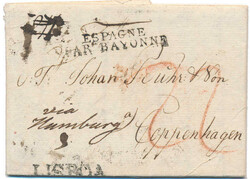 ESPAGNE
PAR BAYONNE
S. T. Johan Suhr & Son
via
Hamburg
Coppenhagen
LISBOA